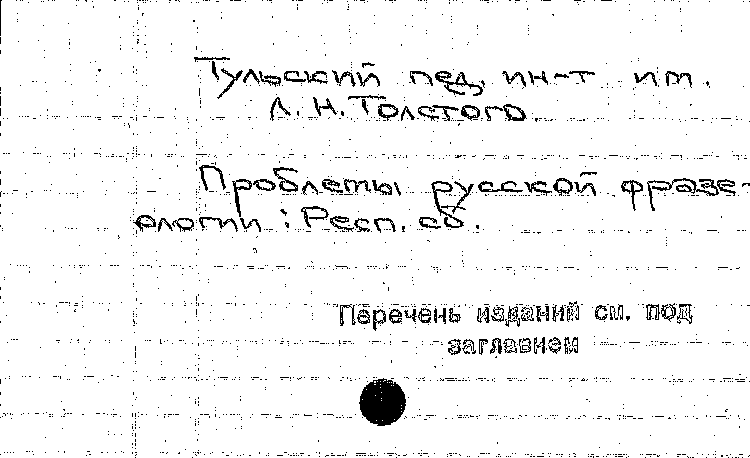 Тульский пед. ин-т им.
Л. Н. Толстого.
Проблемы русской фразе-
ологии : Респ. сб.
Перечень изданий см. под
заглавием